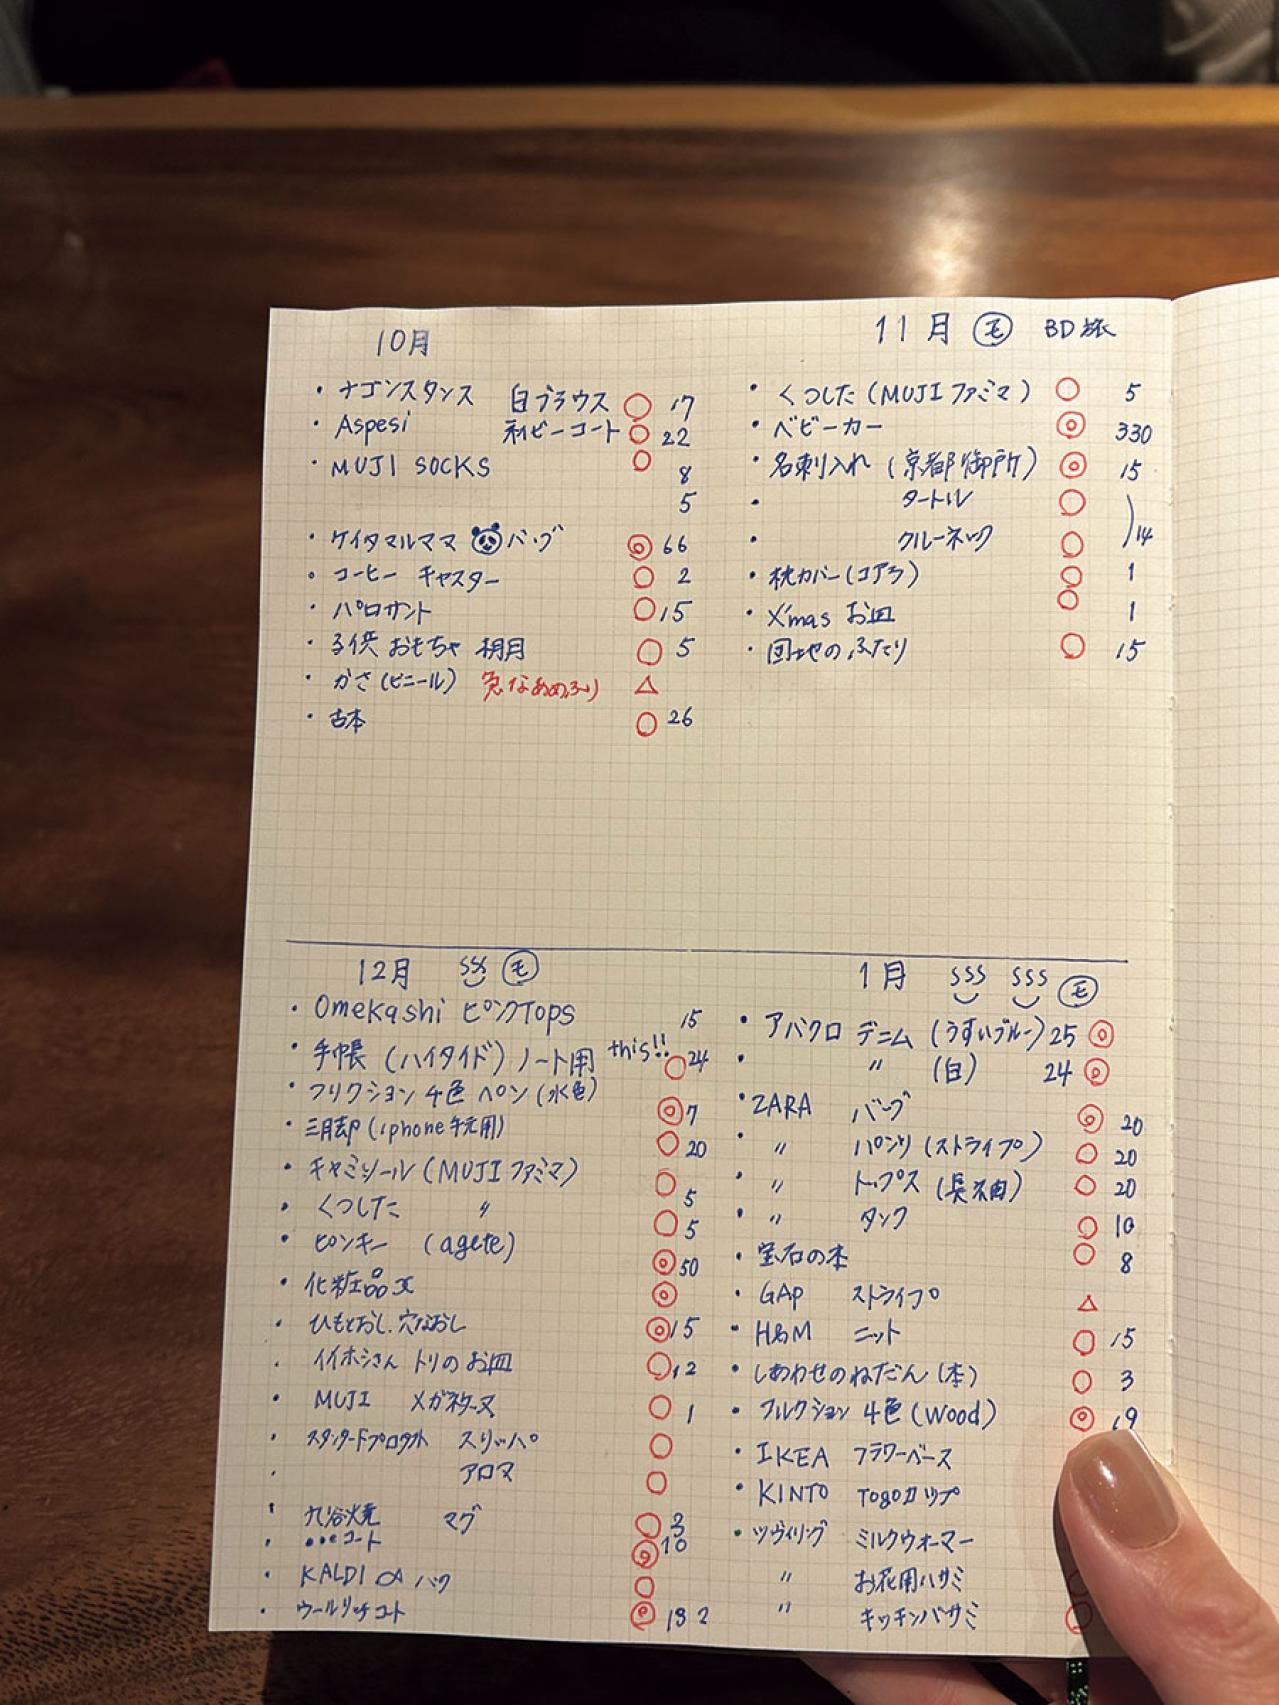 10月
・ナゴンスタンス 白ブラウス ○ 17
・Aspesi ネイビーコート ○ 22
・MUJI SOCKS ○ 8
5
・ケイタマルママ バッグ ◎ 66
・コーヒー キャスター ○ 2
・パロサント ○ 15
・子供 おもちゃ ○ 5
・かさ(ビニール) 急なあめふり △
・古本 ○ 26
11月 モ BD旅
・くつした(MUJI ファミマ) ○ 5
・ベビーカー ◎ 330
・名刺入れ(京都御所) ◎ 15
・タートル ○
・クルーネック ○ 14
・枕カバー(コアラ) ○ 1
・X'mas お皿 ○ 1
・団地のふたり ○ 15
12月 sss モ
・Omekashi ピンクTops 15
・手帳(ハイタイド)ノート用 this!! ○ 24
・フリクション 4色 ペン(水色) ◎ 7
・三脚(iphone用) ○ 20
・キャミソール(MUJI ファミマ) ○ 5
・くつした 〃 ○ 5
・ピンキー (agete) ◎ 50
・化粧品 ◎
・ひもとおし、穴なおし ◎ 15
・イイホシさん トリのお皿 ○ 12
・MUJI メガネケース ○ 1
・スタンダードプロダクト スリッパ ○
・アロマ ○
・九谷焼 マグ ○ 3
・コート ◎ 10
・KALDI ○
・ウールリッチコート ◎ 132
1月 sss sss モ
・アバクロ デニム (うすいブルー) 25 ◎
・〃 (白) 24 ◎
・ZARA バッグ ◎ 20
・〃 パンツ(ストライプ) ○ 20
・〃 トップス(長袖) ○ 20
・〃 タンク ○ 10
・宝石の本 ○ 8
・GAP ストライプ △
・H&M ニット ○ 15
・しあわせのねだん(本) ○ 3
・フリクション 4色(Wood) ◎ 19
・IKEA フラワーベース
・KINTO Togoカップ
・ツヴィリング ミルクウォーマー
〃 お花用ハサミ
〃 キッチンバサミ